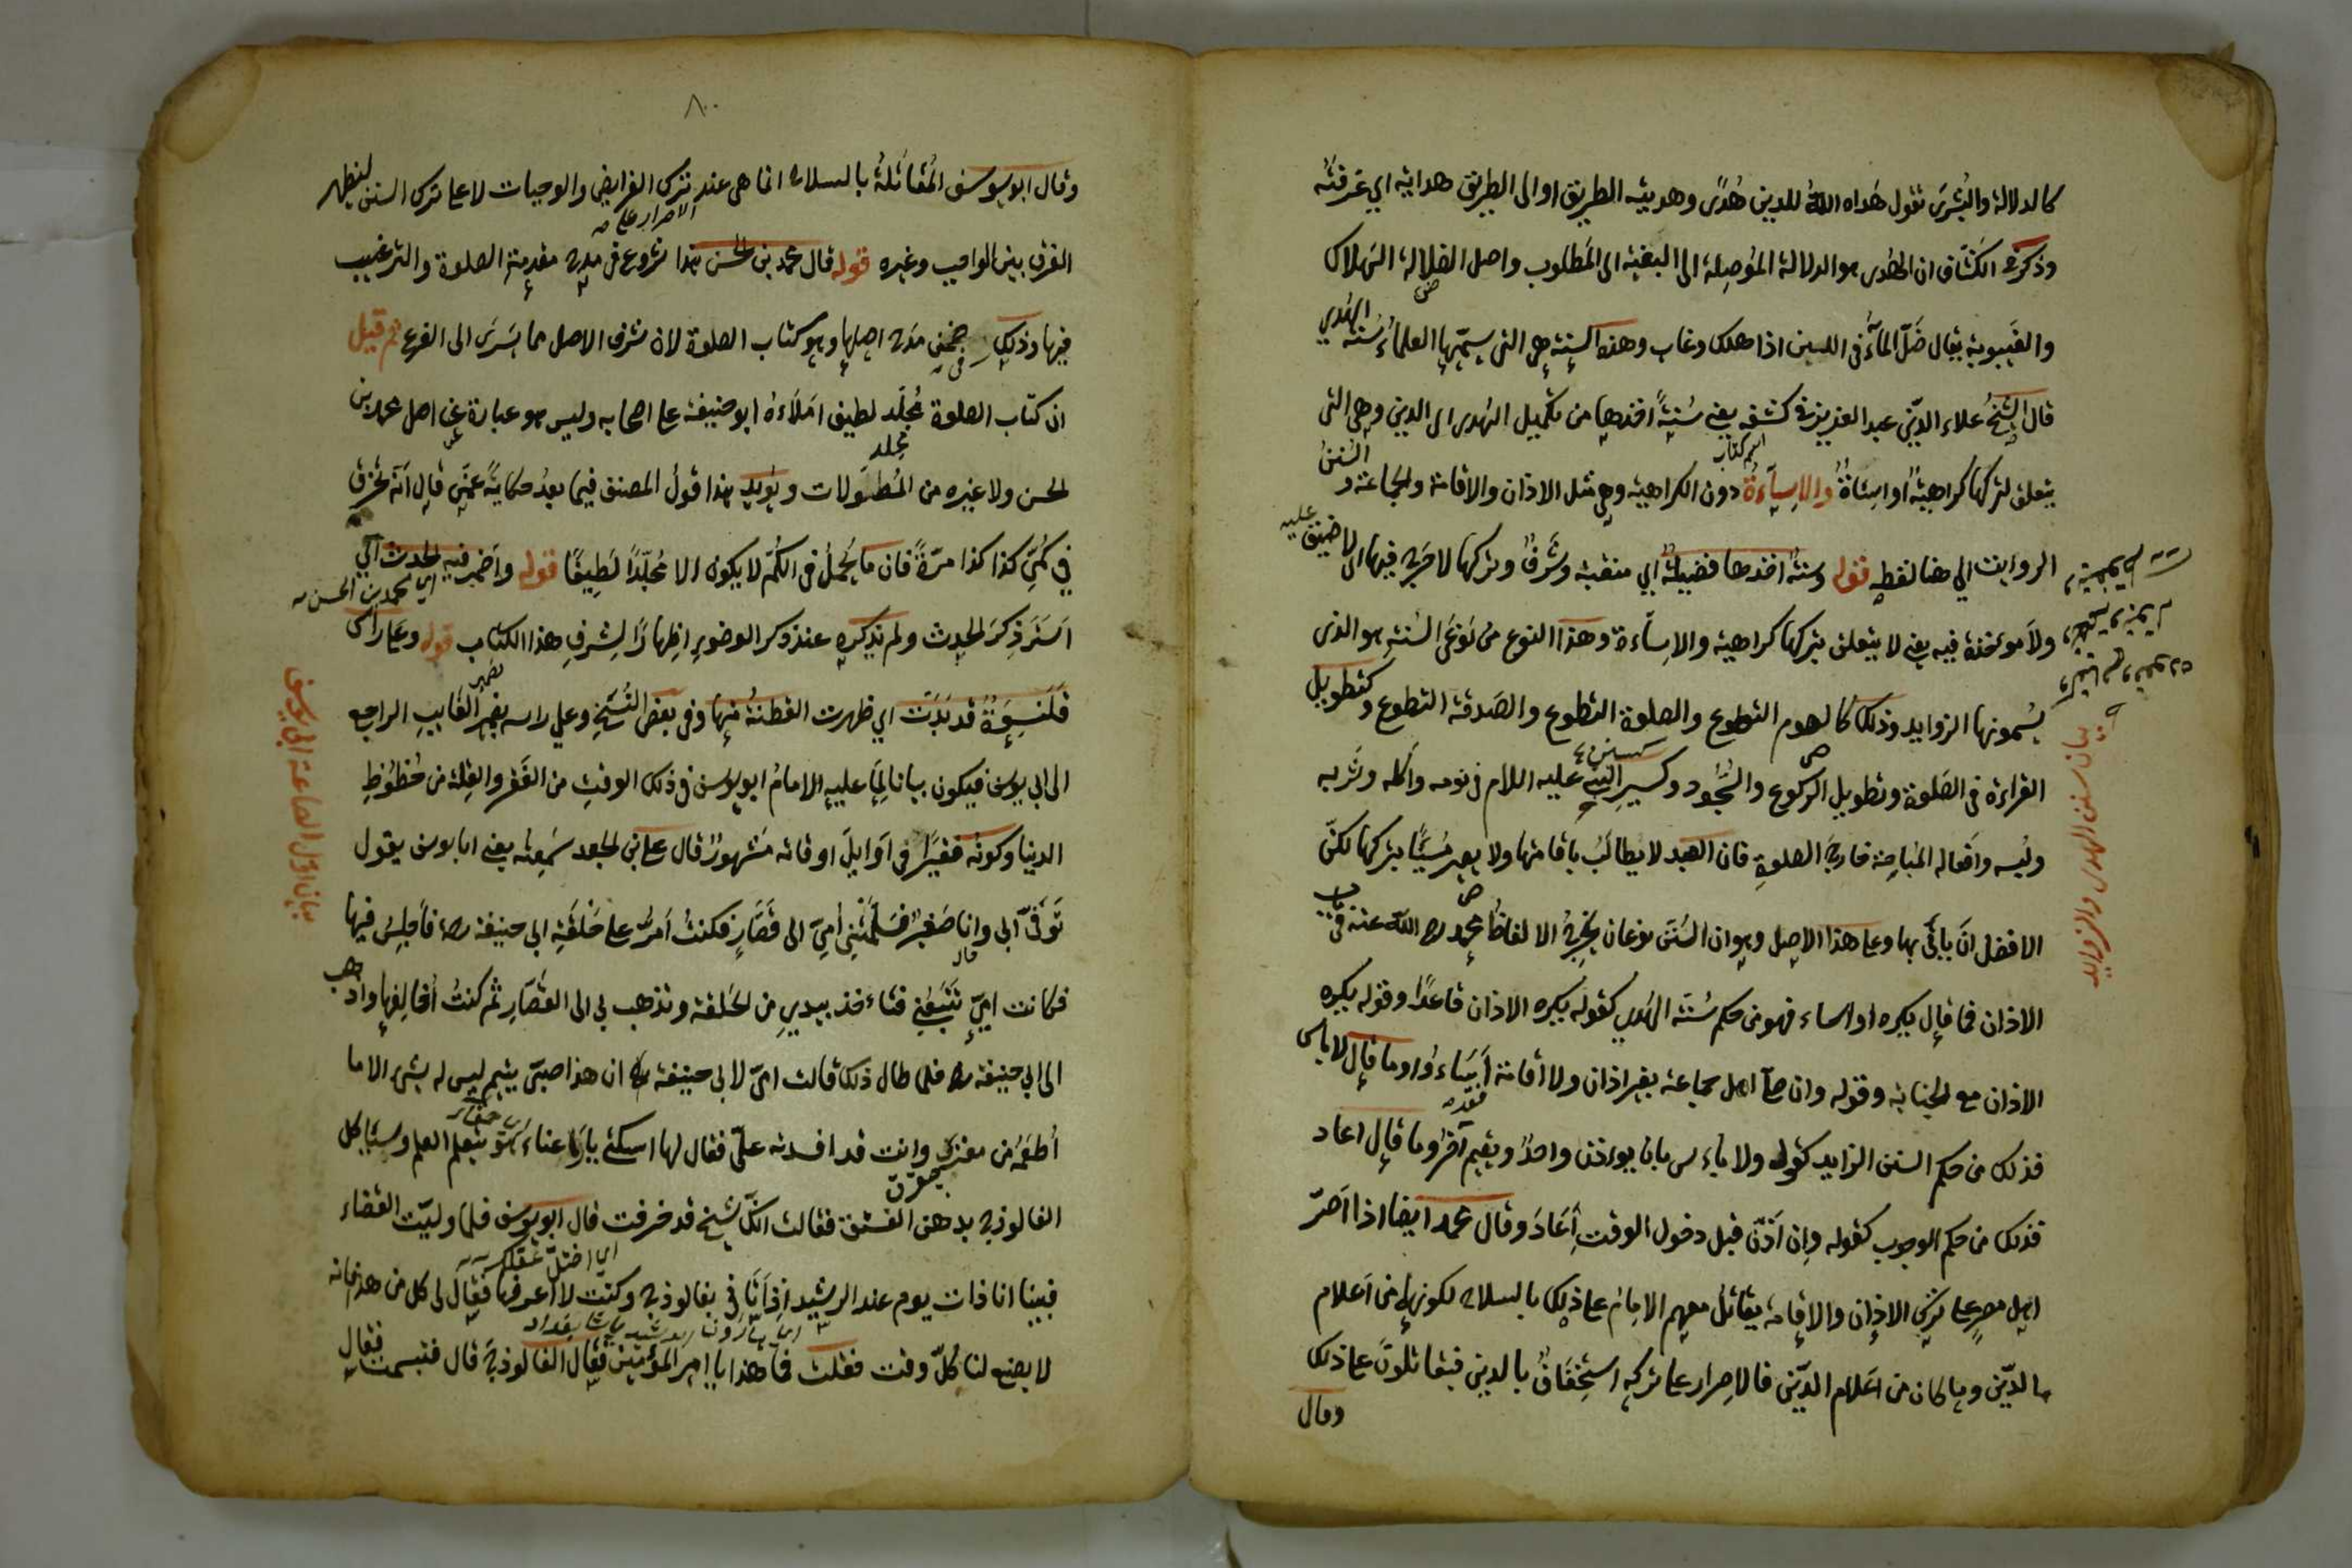 كالدلالة والبُشرَى تقول هداه اللهُ للدين هُدًى وهديته الطريق او الى الطريق هداية اي عرفتُه
وذكر في الكشّاف ان الهُدى هو الدلالة المُوصِلة الى البغية الى المطلوب واصل الضلالة الهلاك
والغَيبوبة يقال ضَلّ المآءُ فى اللبن اذا هلك وغاب وهذه السنة هي التى سمّيها العلماءُ سُنّة الهُدي
قال الشيخُ علاء الديّن عبد العزيز في كشفه يعني سُنةً اخذها من تكميل الهُدى اى الدين وهى التى
اسم كتاب
يتعلق بتركها كراهيةٌ او اساءةٌ والإساءةُ دون الكراهية وهي مثل الاذان والاقامة والجماعة و السُنَنُ
الرواتب الي هنا لفظه قوله وسنةٌ اخذها فضيلةٌ اي منقبة وشَرَفٌ وتركها لا حَرج فيها اى لا ضيق عليه
ولا مؤخذة فيه يعني لا يتعلق بتركها كراهية والاساءة وهذا النوع من نوعَى السُنة هو الذى
يسُمونها الزوايد وذلك كالصوم التطوع والصلوة التطوع والصدقة التطوع و كتطويل
القراءة فى الصَلوة وتطويل الركوع والسُجُود وكسِيرِ النبي عليه السلام فى نومه وأكله وشُربه
ولبُسه وافعاله المُباحة خارجَ الصلوةِ فان العبد لا يُطالَبُ باقامتها ولا يصير مُسيئًا بتركها لكنّ
الافضل انَ يأتىَ بها وعلى هذا الاصل وهو ان السُنَنَ نوعان يُخرجُ الالفاظُ محمد رح اللّه عنه فى باب
الاذان فما قال يكره او اساء فهو من حكم سُنّة الهدي كقوله يكره الاذان قاعدًا وقوله يكره
الاذان مع الجنابة وقوله وان صلّى اهل جماعة بغير اذان ولا اقامة أساءوا وما قال لا باس
فذلك من حكم السنن الزايد كقوله ولا باءس بان يوءذن واحدٌ ويقيم آخرُ وما قال اعاد
فذلك من حكم الوجوب كقوله وان اذّن قبل دخول الوقت أعَادَ وقال محمد ايضا اذا اَصرّ
اهل مصرٍ على تركِ الاذان والاقامة يقاتلُ معهم الامام على ذلك بالسلاح لكونها من اَعلام
الدّين وما كان من اعَلام الديّن فالاصرار على تركه استِخفَافٌ بالدين فيقاتلوُنَ على ذلك
وقال
بيان سنن الهدى والزوايد
٨٠
وقال ابو يوسف المُقاتَلةُ بالسلاح انما هي عند ترك الفرايض والوجبات لا على ترك السنن ليظهر
الاصرار على
الفرق بين الواجب وغيره قوله قال محمد بن الحسن هذا شروع فى مدح مقدمة الصلوة والترغيب
فيها وذلك فى ضمن مدح اصلها وهو كتاب الصلوة لان شرف الاصل مما يَسرَى الى الفرع ثم قيل
ان كتاب الصلوة مُجلّد لطيف املاءهُ ابو حنيفة على اصحابه وليس هو عبارة عن اصل محمد بن
مجلد
الحسن ولا غيره من المُطَوّلات ويؤيد هذا قولُ المصنف فيما بعدُ حكايةً عمّن قال انّه تخرق
في كُمّى كذا كذا مرّةً فان ما يُحملُ فى الكُمّ لا يكون الا مُجلّدًا لطِيفًا قوله واَضمر فيه الحدث اي
اي محمد بن الحسن
اَسَترَ ذِكرَ الحدث ولم يذكره عند ذكر الوضوءِ اِظهارًا لِشرفِ هذا الكتاب قوله وعلى راسى
قَلنسُوَةٌ قد بَدَت اي ظهرت القطنة منها وفى بعض النُسَخِ وعلى راسه بضمير الغايب الراجع
الى ابي يوسف فيكون بيانا لِما عليه الامامُ ابو يوسف فى ذلك الوقت من الفَقر والقِلة من حُظُوظِ
الدنيا وكونه فقيرًا فى اَوَايلَ اوقاته مَشهورٌ قال على بن الجعد سمَعِته يعنى ابا يوسف يقول
تَوَفَّى اَبى وانا صَغيرٌ فسَلّمَتنِى اُمىّ الى قَصّارٍ فكنتُ اَمُرّ على حَلقَةِ ابي حنيفة رح فأجلِسُ فيها
فكانت امىّ تتبَعُنِى فتاءخذ بيدي من الحَلقة وتذهب بى الى القَصّارِ ثم كنتُ اُخالِفُها واذهب
الى ابي حنيفة رح فلما طال ذلك قالت امىّ لابى حنيفة رح ان هذا صبىّ يتيم ليس له شىء الا ما
اُطعمُه من مغزلي وانت قد افسدته علىّ فقال لها اسكتي يا رَعناء هو يتعلم العلم وسيَاكل
الفالوذج بدهن الفستق فقالت انّك شيخ قد خرفت قال ابو يوسف فلما ولّيتُ القضاء
اي اختلّ عقلك
فبينا انا ذات يوم عند الرشيد اِذ اَتَانِي بفالوذج وكنتُ لا اعرفها فقال لى كل من هذا فانه
اي هارون الرشيد
لا يصنع لنا كلّ وقت فقلت فما هذا يا امير المؤمنين فقال الفالوذج قال فتبسمت فقال
بيان اوّل اطاعة ابى يوسف